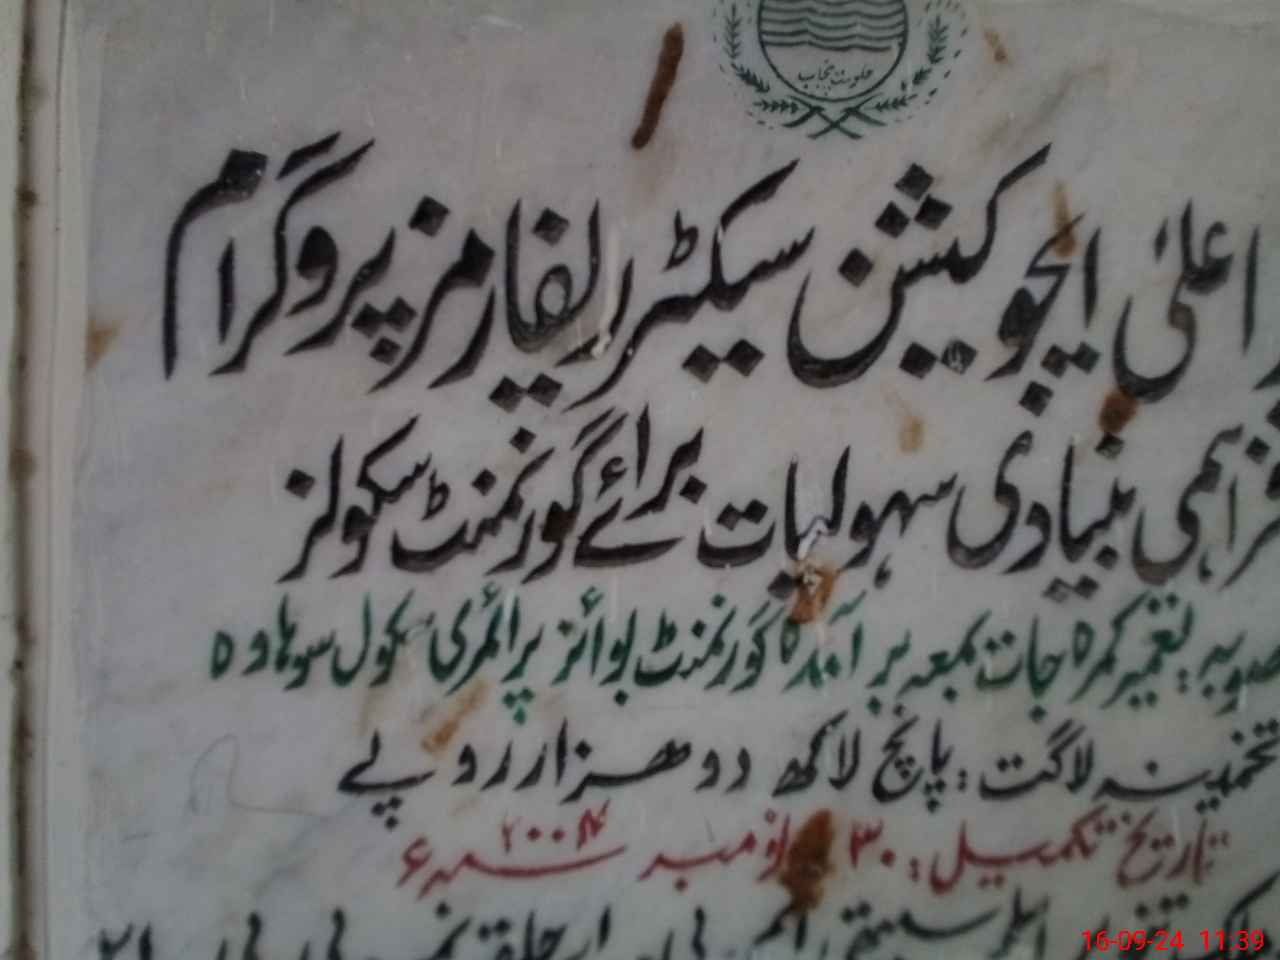 حکومت پنجاب
اعلیٰ ایجوکیشن سیکٹر ریفارمز پروگرام
فراہمی بنیادی سہولیات برائے گورنمنٹ سکولز
منصوبہ: تعمیر کمرہ جات بمعہ برآمدہ گورنمنٹ بوائز پرائمری سکول سوہاوہ
تخمینہ لاگت: پانچ لاکھ دو ھزار روپے
تاریخ تکمیل: ۳۰ نومبر ۲۰۰۴ء
16-09-24 11:39